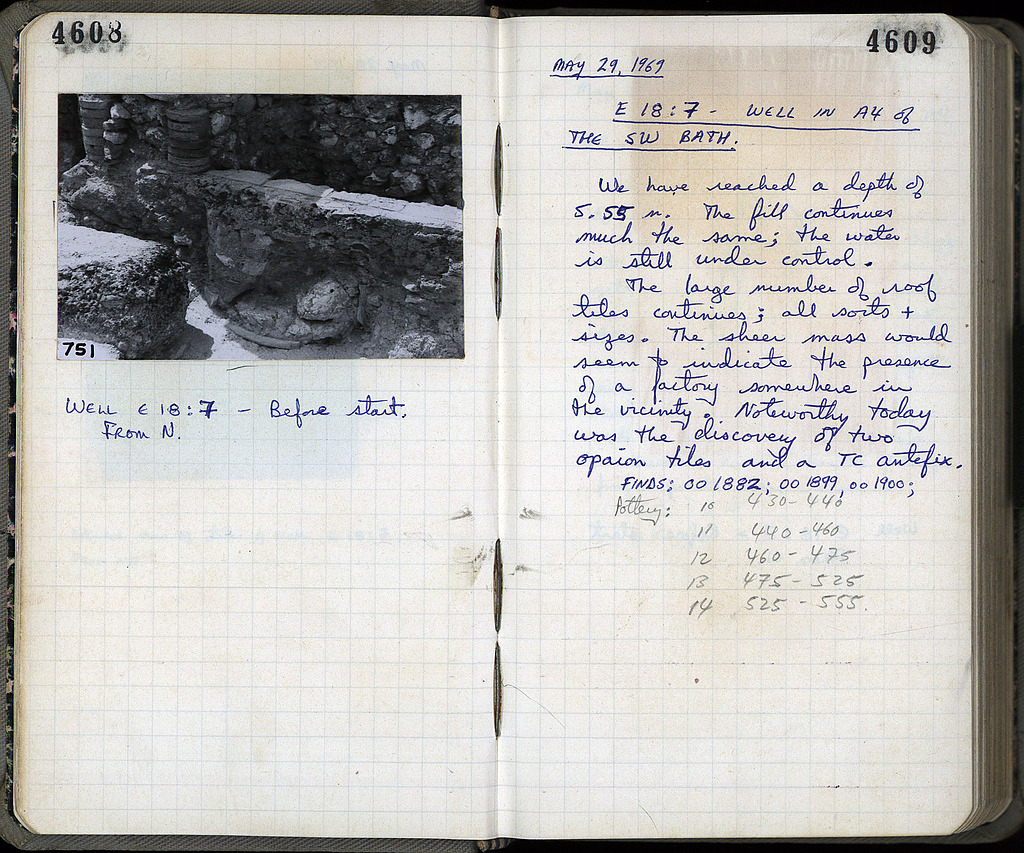 4608
751
WELL E 18:7 - Before start.
From N.
4609
MAY 29, 1969
E 18:7 - WELL IN A4 of
THE SW BATH.
We have reached a depth of
5.55 m. The fill continues
much the same; the water
is still under control.
The large number of roof
tiles continues; all sorts +
sizes. The sheer mass would
seem to indicate the presence
of a factory somewhere in
the vicinity. Noteworthy today
was the discovery of two
opaion tiles and a TC antefix.
FINDS: OO 1882; OO 1899, OO 1900;
Pottery: 10 430-440
11 440-460
12 460-475
13 475-525
14 525-555.